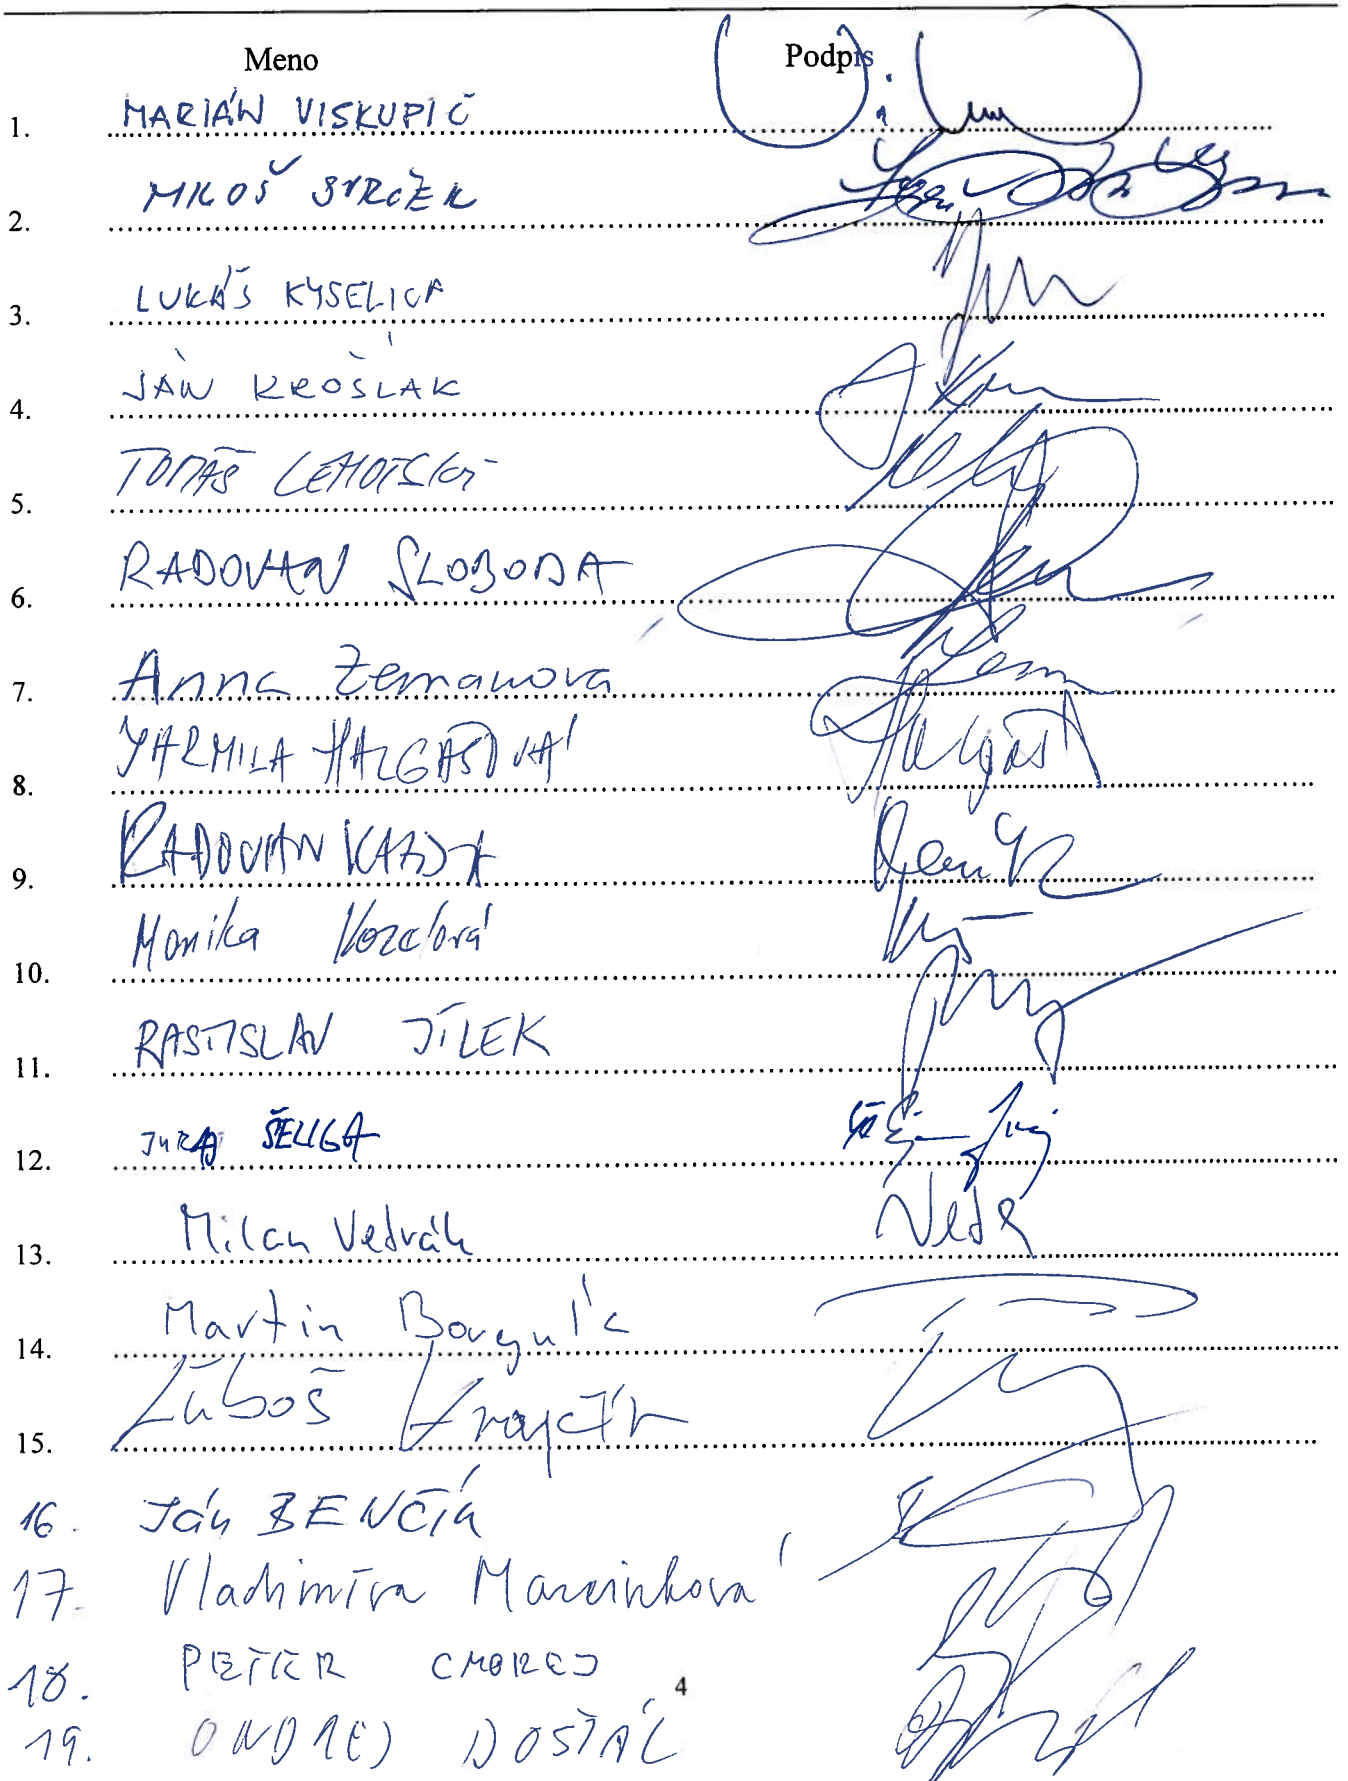 Meno Podpis
1. MARIÁN VISKUPIČ
2. MILOŠ SVRČEK
3. LUKÁŠ KYSELICA
4. JÁN KROŠLÁK
5. TOMÁŠ LEHOTSKÝ
6. RADOVAN SLOBODA
7. Anna Zemanova
8. JARMILA HALGAŠOVÁ
9. RADOVAN KAZDA
10. Monika Kozelová
11. RASTISLAV JÍLEK
12. JURAJ ŠELIGA
13. Milan Vetrák
14. Martin Borguľa
15. Ľuboš Krajčír
16. Ján BENČÍK
17. Vladimíra Marcinková
18. PETER CMOREJ
4
19. ONDREJ DOSTÁL